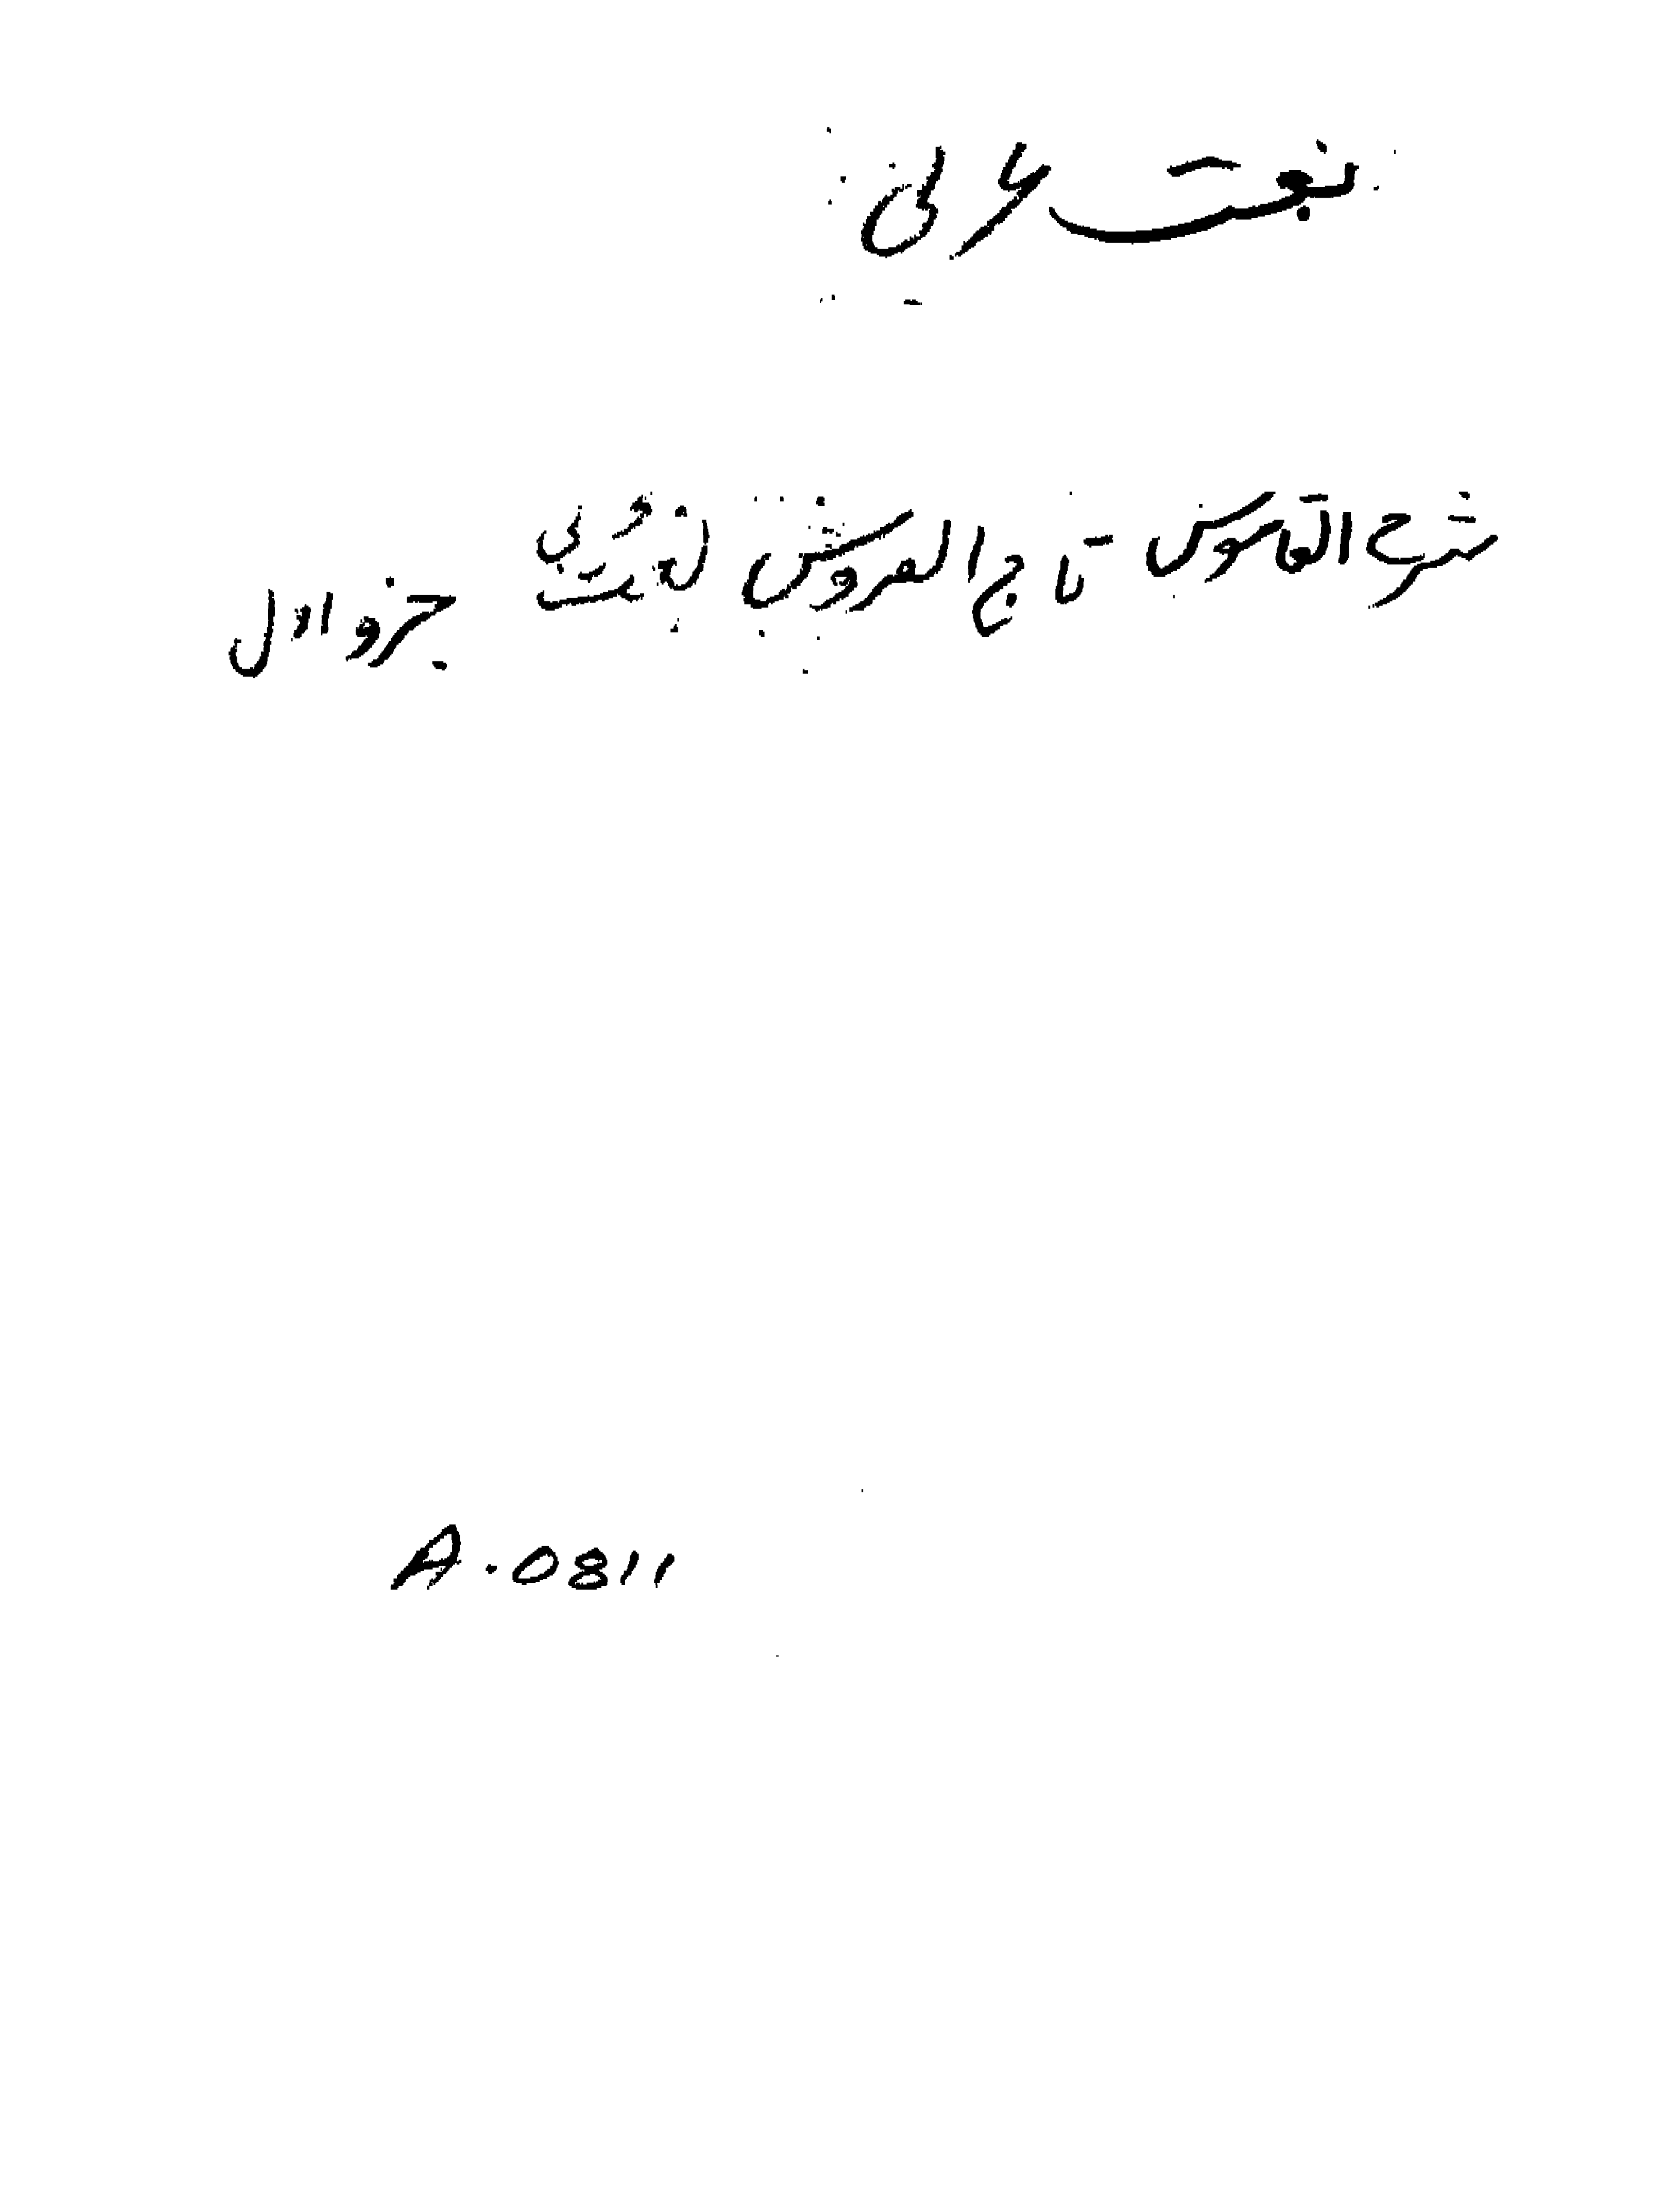 لغت عربی
شرح القاموس تاج العروس لغت عربی جزو اول
A.0811